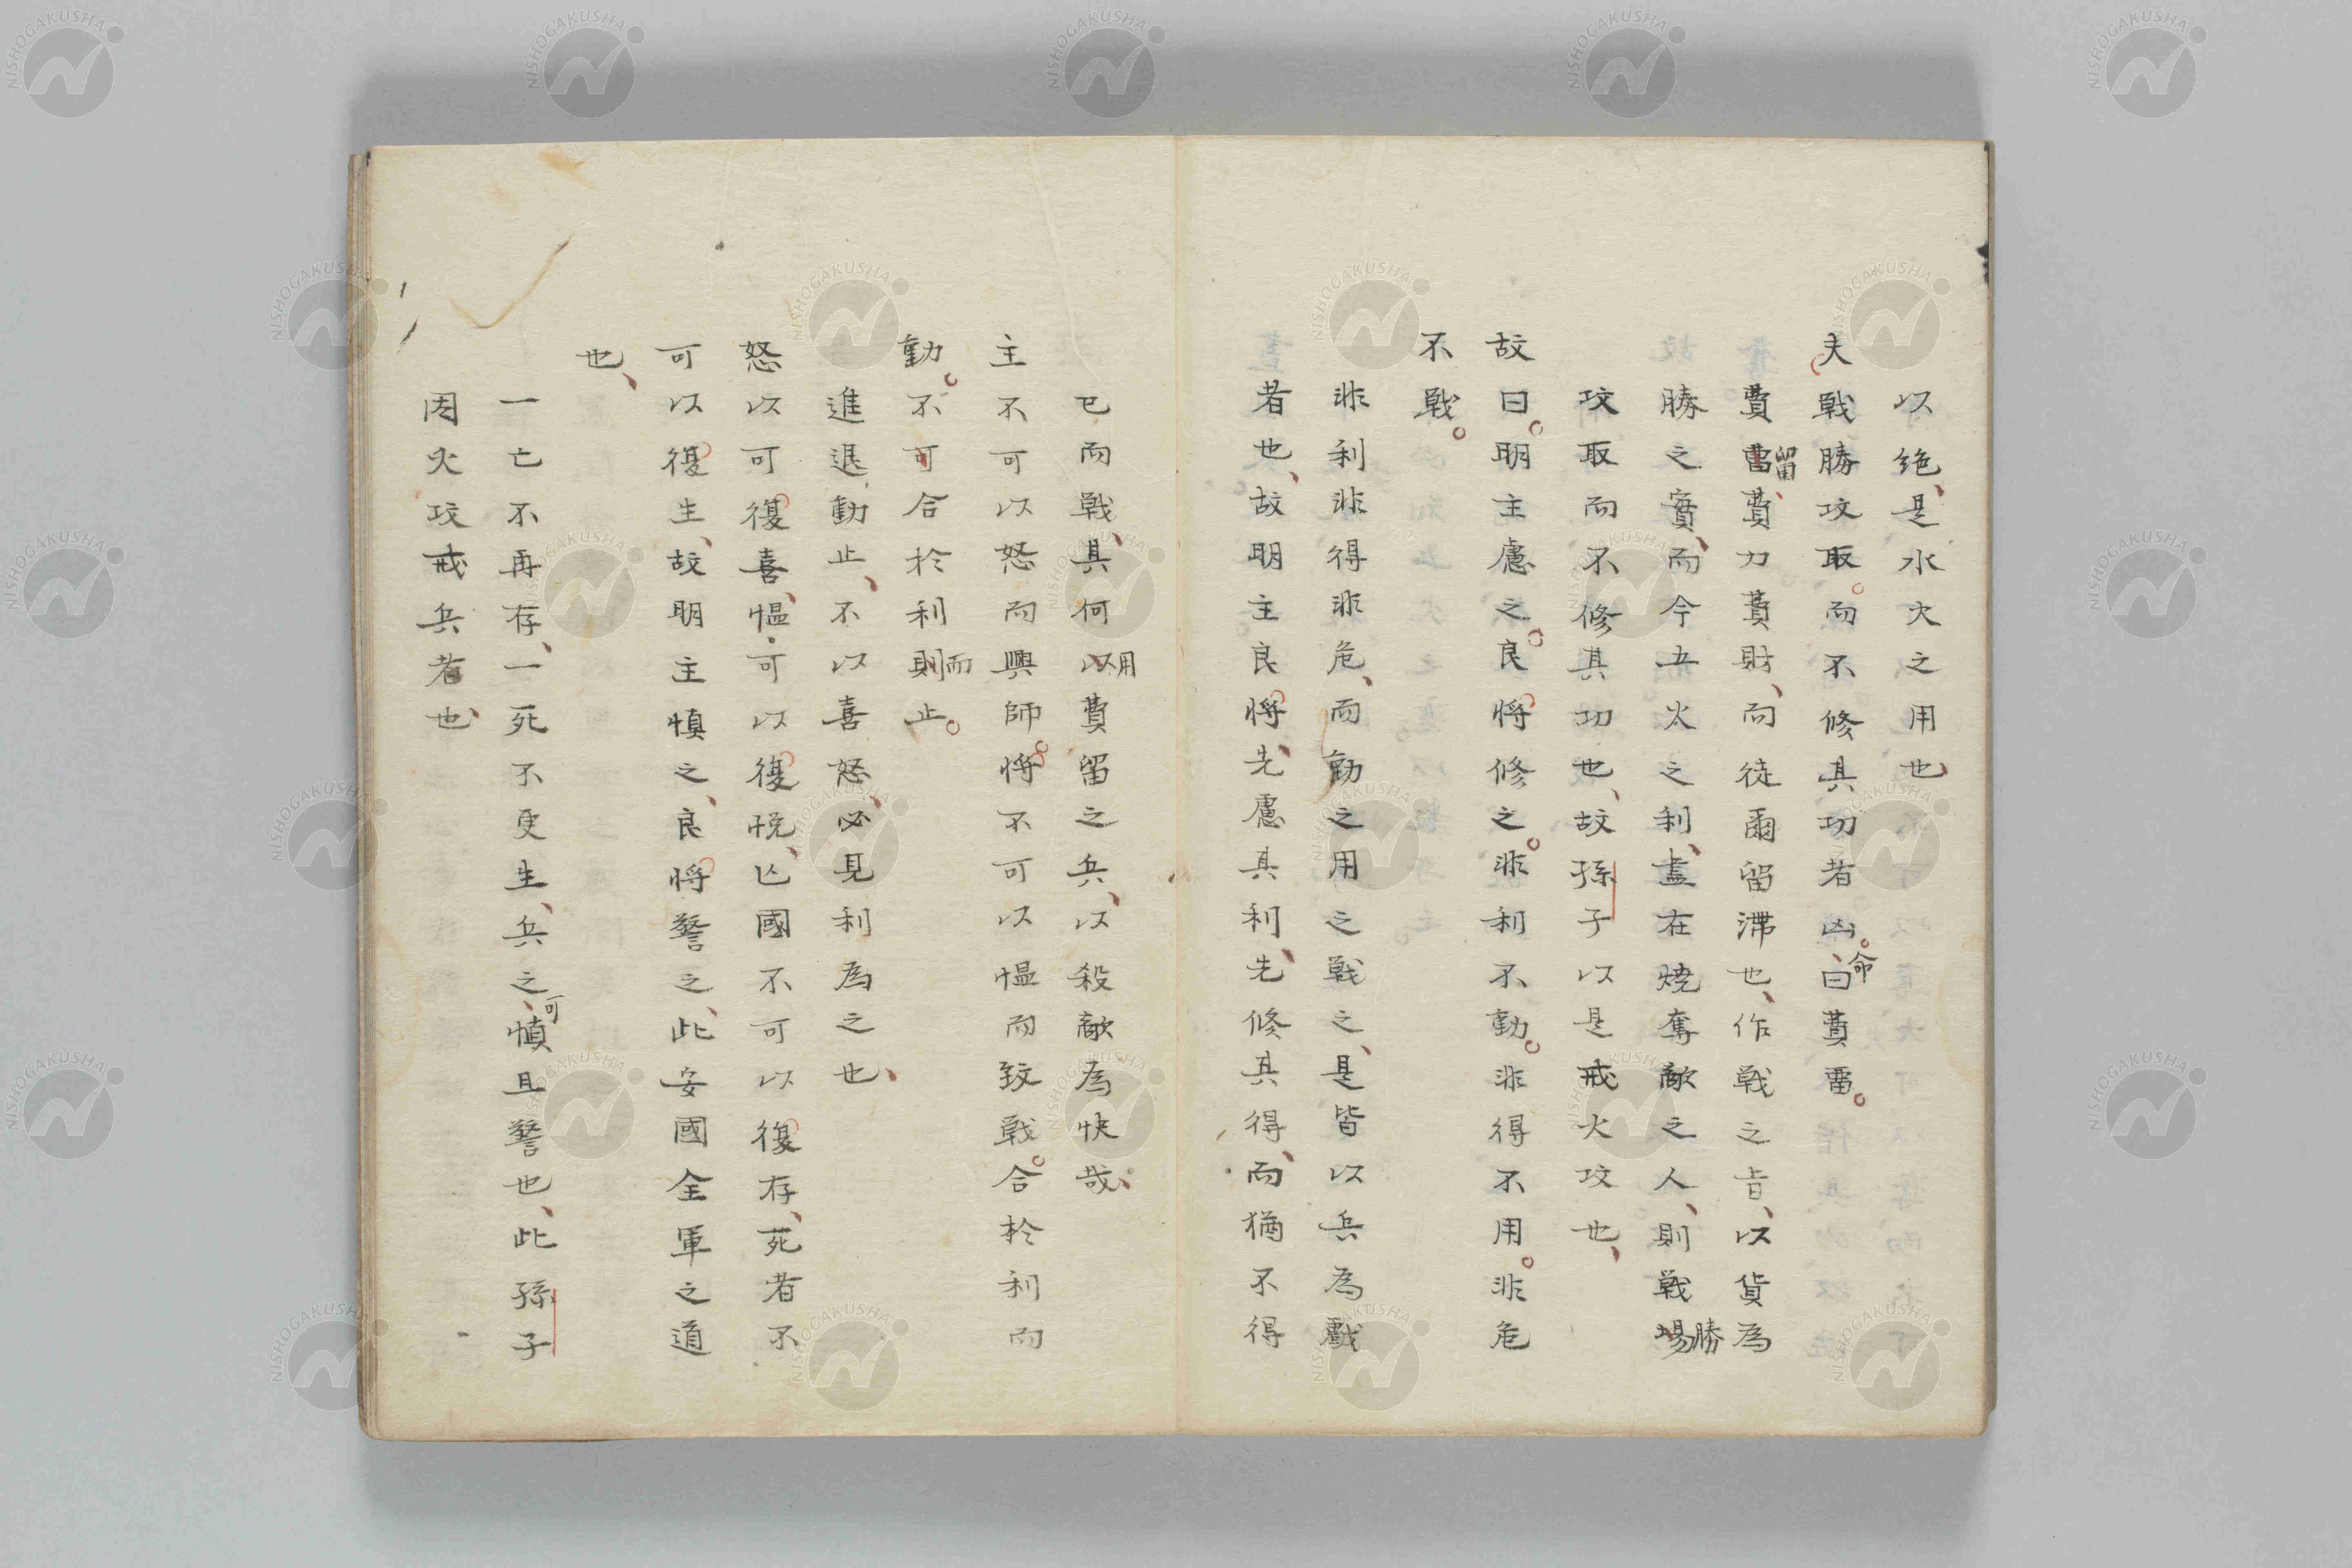 以絶、是水火之用也、
夫戰勝攻取。而不修其功者凶。命曰費畱。
費畱留、費力費財、而徒爾留滯也、作戰之旨、以貨為
勝之實、而今五火之利、盡在燒奪敵之人、則戰場勝
攻取而不修其功也、故孫子以是戒火攻也、
故曰。明主慮之。良將修之。非利不動。非得不用。非危
不戰。
非利非得非危、而動之用之戰之、是皆以兵為戲
者也、故明主良將、先慮其利、先修其得、而猶不得
已而戰、其何以用費留之兵、以殺敵為快哉、
主不可以怒而興師。將不可以慍而致戰。合於利而
動。不可合於利則而止。
進退動止、不以喜怒、必見利為之也、
怒以可復喜、慍可以復悅、亡國不可以復存、死者不
可以復生、故明主慎之、良將警之、此安國全軍之道
也、
一亡不再存、一死不更生、兵之、可慎且警也、此孫子
因火攻戒兵者也、
NISHOGAKUSHA